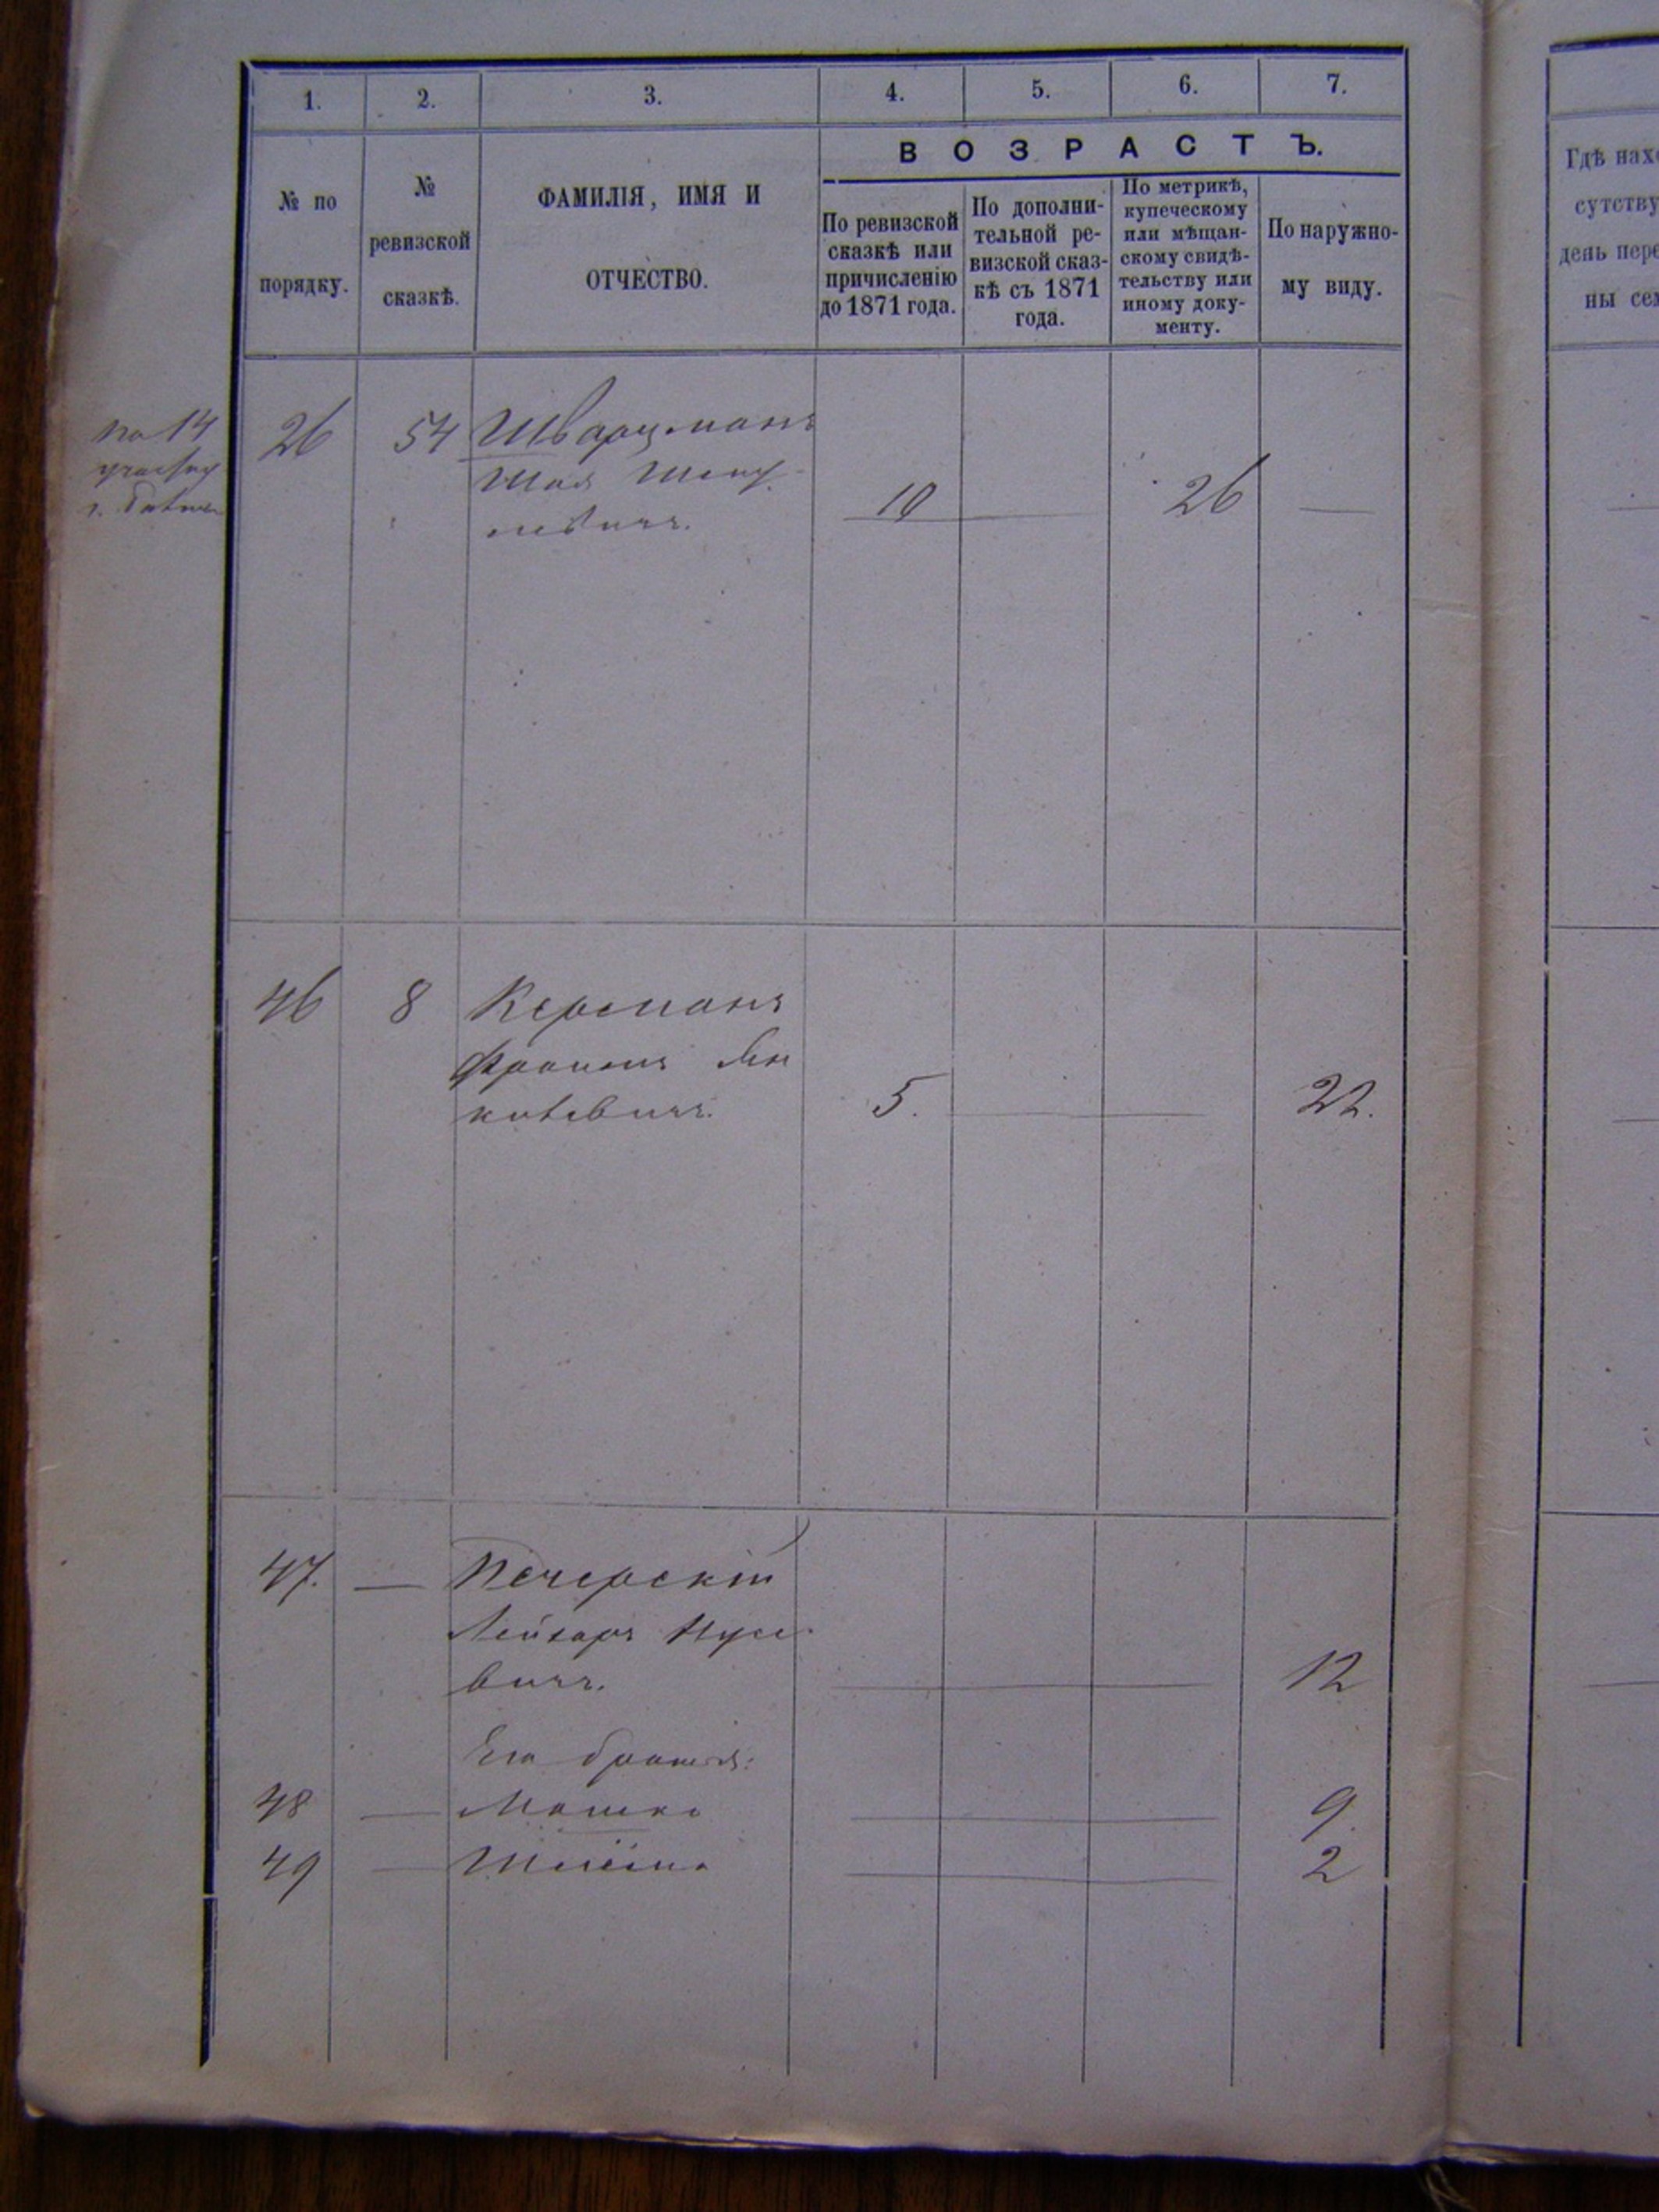 1. 2. 3. 4. 5. 6. 7.
ВОЗРАСТЪ.
№ по
порядку.
№
ревизской
сказкѣ.
ФАМИЛІЯ, ИМЯ И
ОТЧЕСТВО.
По ревизской
сказкѣ или
причисленію
до 1871 года.
По дополни-
тельной ре-
визской сказ-
кѣ съ 1871
года.
По метрикѣ,
купеческому
или мѣщан-
скому свидѣ-
тельству или
иному доку-
менту.
По наружно-
му виду.
по 14
26 54 Шварцманъ
Шая
10 — 26 —
46 8 Керманъ
Фроимъ Ян
келевичъ. 5. — — 22.
47. — Печерскій
Лейзаръ Нусе
вичъ. — — — 12
Его братья:
48 — Мошко — — — 9.
49 — Шлёма — — — 2
Гдѣ нахо
сутству
день пере
ны сем